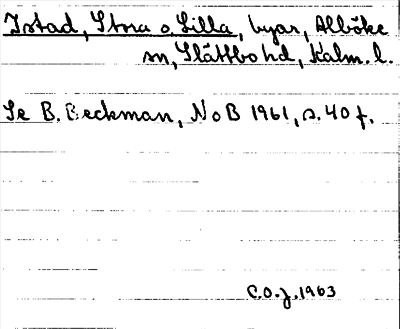 Istad, Stora o. Lilla, byar, Alböke
sn, Slättbo hd, Kalm. l.
Se B. Beckman, NoB 1961, s. 40 f.
C.O.J. 1963